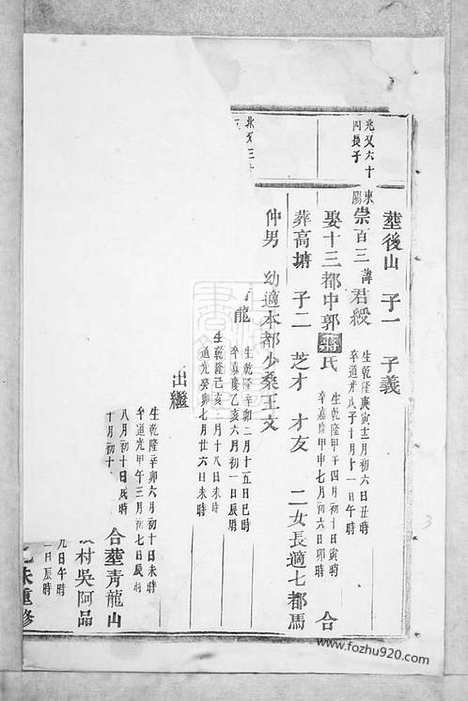 塟後山 子一 子義
兆父六十
四長子
東陽崇百三 諱君綬
生乾隆庚寅十二月初六日丑時
卒道光戊子十月十一日午時
娶十三都中郭蔣氏
生乾隆甲午四月初十日寅時
卒嘉慶甲申七月初六日卯時
合
葬高塘 子二 芝才 才友 二女長適七都馬
仲男 幼適本都少桑王文
龍
生乾隆辛卯二月十五日巳時
卒嘉慶乙亥六月初一日辰時
生乾隆己亥六月十八日未時
道光癸卯七月廿六日未時
出繼
生乾隆辛卯六月初十日未時
卒道光甲午三月初七日辰時
八月初十日辰時
十月初十
合塟青龍山
村吳阿品
九日午時
二日辰時
乙未重修
www.fozhu920.com